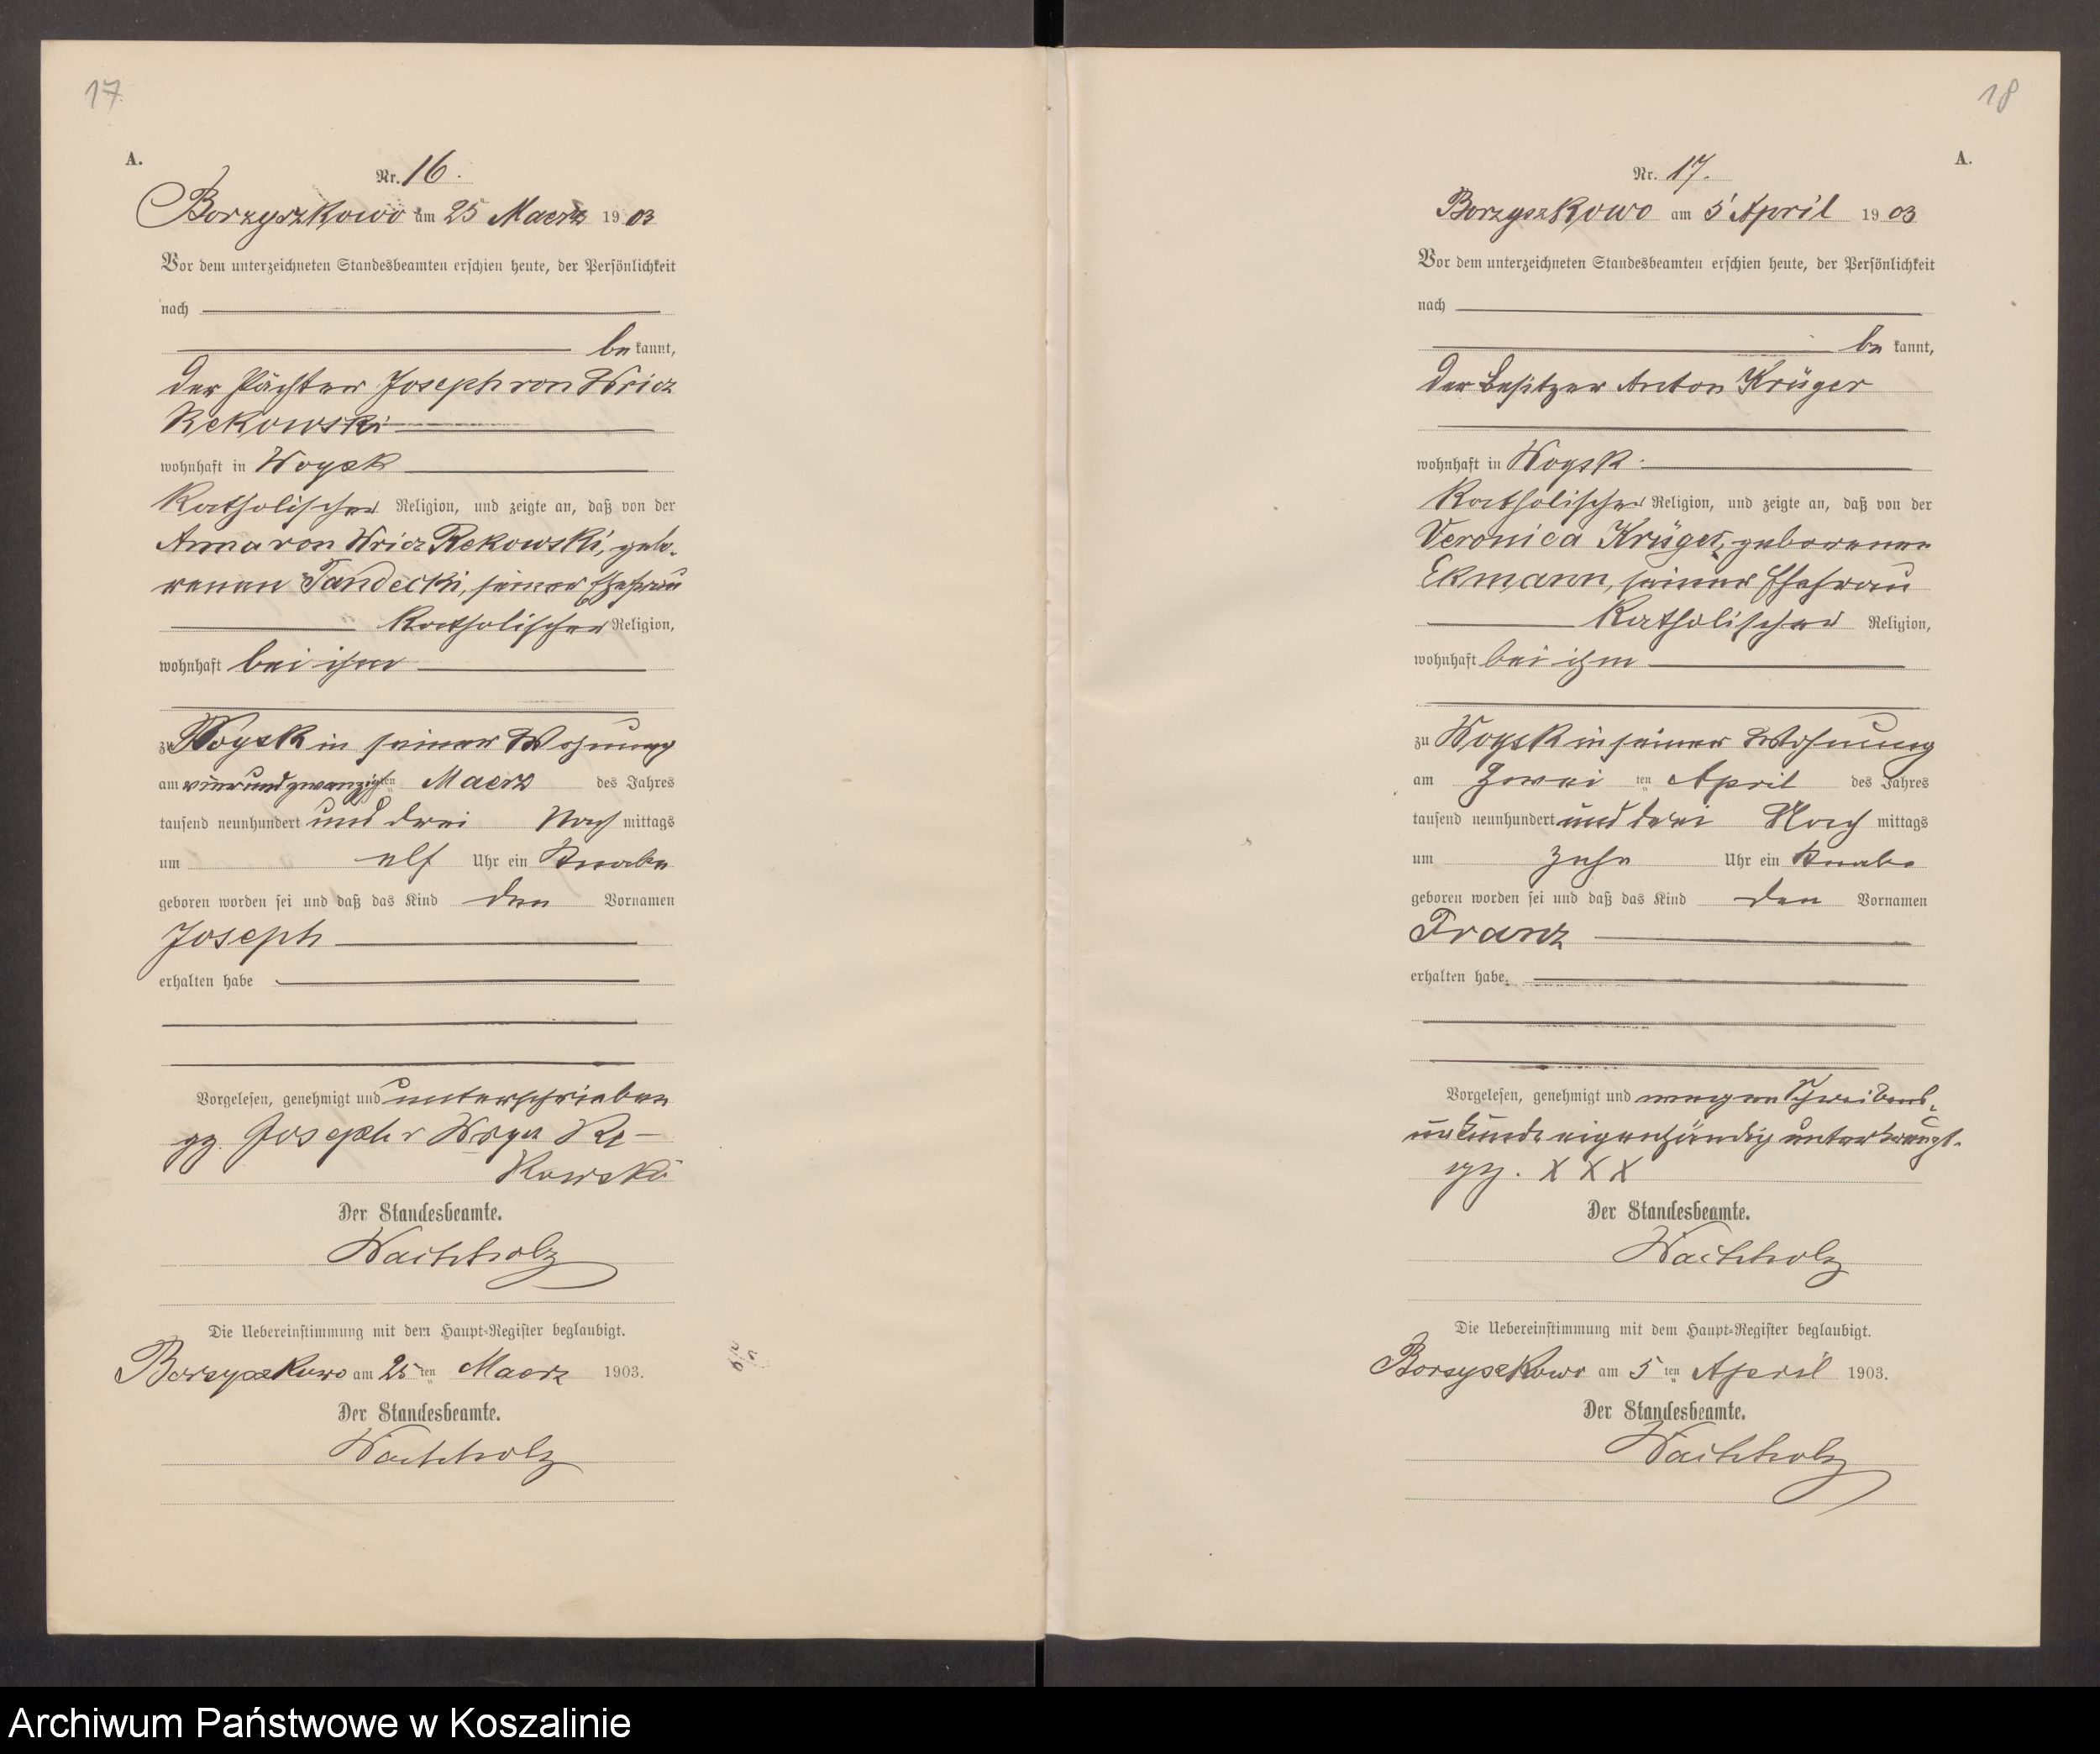 17
A.
Nr. 16.
Borzyszkowo am 25 Maerz 1903
Vor dem unterzeichneten Standesbeamten erschien heute, der Persönlichkeit
nach
bekannt,
der Pächter Joseph von Wricz
Rekowski
wohnhaft in Woysk
katholischer Religion, und zeigte an, daß von der
Anna von Wricz Rekowski, gebo-
renen Tandecki, seiner Ehefrau
katholischer Religion,
wohnhaft bei ihm
zu Woysk in seiner Wohnung
am vierundzwanzigsten Maerz des Jahres
tausend neunhundert und drei Nachmittags
um elf Uhr ein Knabe
geboren worden sei und daß das Kind den Vornamen
Joseph
erhalten habe
Vorgelesen, genehmigt und unterschrieben
gz. Joseph v Wrycz Re-
kowski
Der Standesbeamte.
Wachholz
Die Uebereinstimmung mit dem Haupt-Register beglaubigt.
Borzyszkowo am 25ten Maerz 1903.
Der Standesbeamte.
Wachholz
18
A.
Nr. 17.
Borzyszkowo am 5 April 1903
Vor dem unterzeichneten Standesbeamten erschien heute, der Persönlichkeit
nach
bekannt,
der Besitzer Anton Krüger
wohnhaft in Woysk
katholischer Religion, und zeigte an, daß von der
Veronica Krüger, geborenen
Ekmann, seiner Ehefrau
katholischer Religion,
wohnhaft bei ihm
zu Woysk in seiner Wohnung
am zweiten April des Jahres
tausend neunhundert und drei Nachmittags
um zehn Uhr ein Knabe
geboren worden sei und daß das Kind den Vornamen
Franz
erhalten habe.
Vorgelesen, genehmigt und wegen Schreibens-
unkunde eigenhändig unterkreuzt.
gz. X X X
Der Standesbeamte.
Wachholz
Die Uebereinstimmung mit dem Haupt-Register beglaubigt.
Borzyszkowo am 5ten April 1903.
Der Standesbeamte.
Wachholz
Archiwum Państwowe w Koszalinie